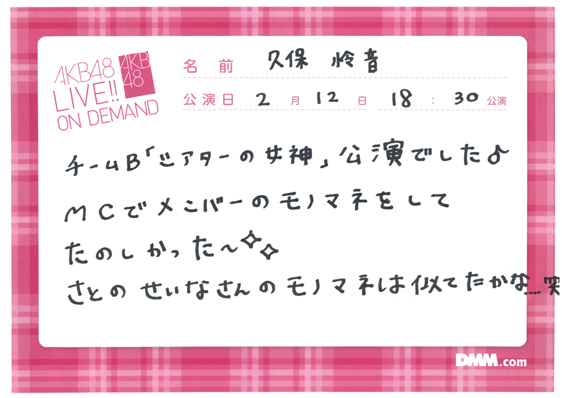 AKB48
LIVE!!
ON DEMAND
AKB
48
名前 久保 怜音
公演日 2月12日 18:30公演
チームB「シアターの女神」公演でした♪
MCでメンバーのモノマネをして
たのしかった〜✧✧
さとのせいなさんのモノマネは似てたかな...笑
DMM.com